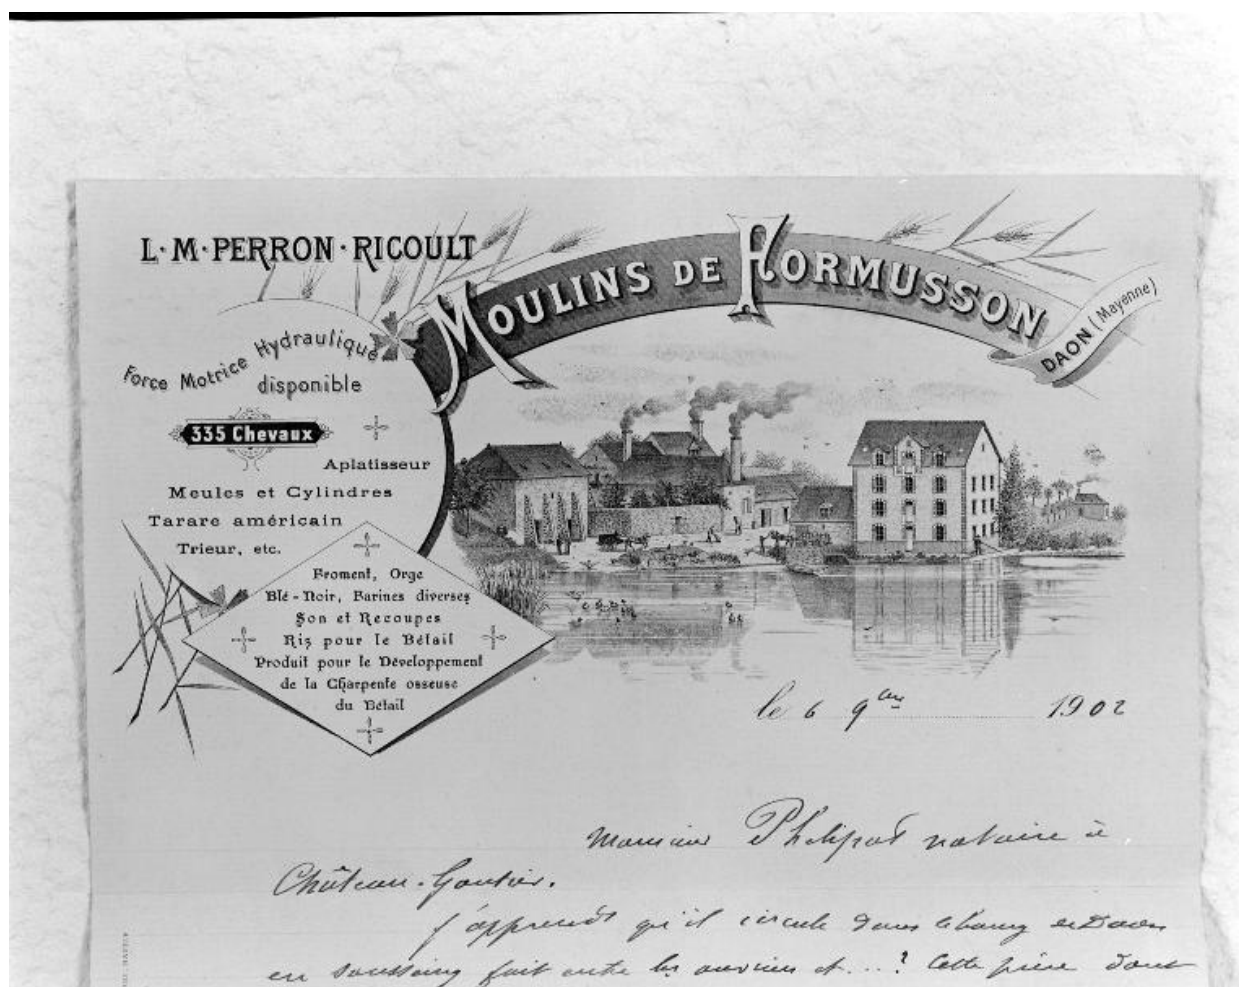 L·M·PERRON·RICOULT
MOULINS DE FORMUSSON
DAON (Mayenne)
Force Motrice Hydraulique
disponible
335 Chevaux
Aplatisseur
Meules et Cylindres
Tarare américain
Trieur, etc.
Froment, Orge
Blé-Noir, Farines diverses
Son et Recoupes
Riz pour le Bétail
Produit pour le Développement
de la Charpente osseuse
du Bétail
le 6 9bre 1902
Monsieur Philipot notaire à
Château-Gontier.
J'apprends qu'il circule dans le bourg de Daon
en soussaing fait entre les ouvriers et...? Cette pièce dont